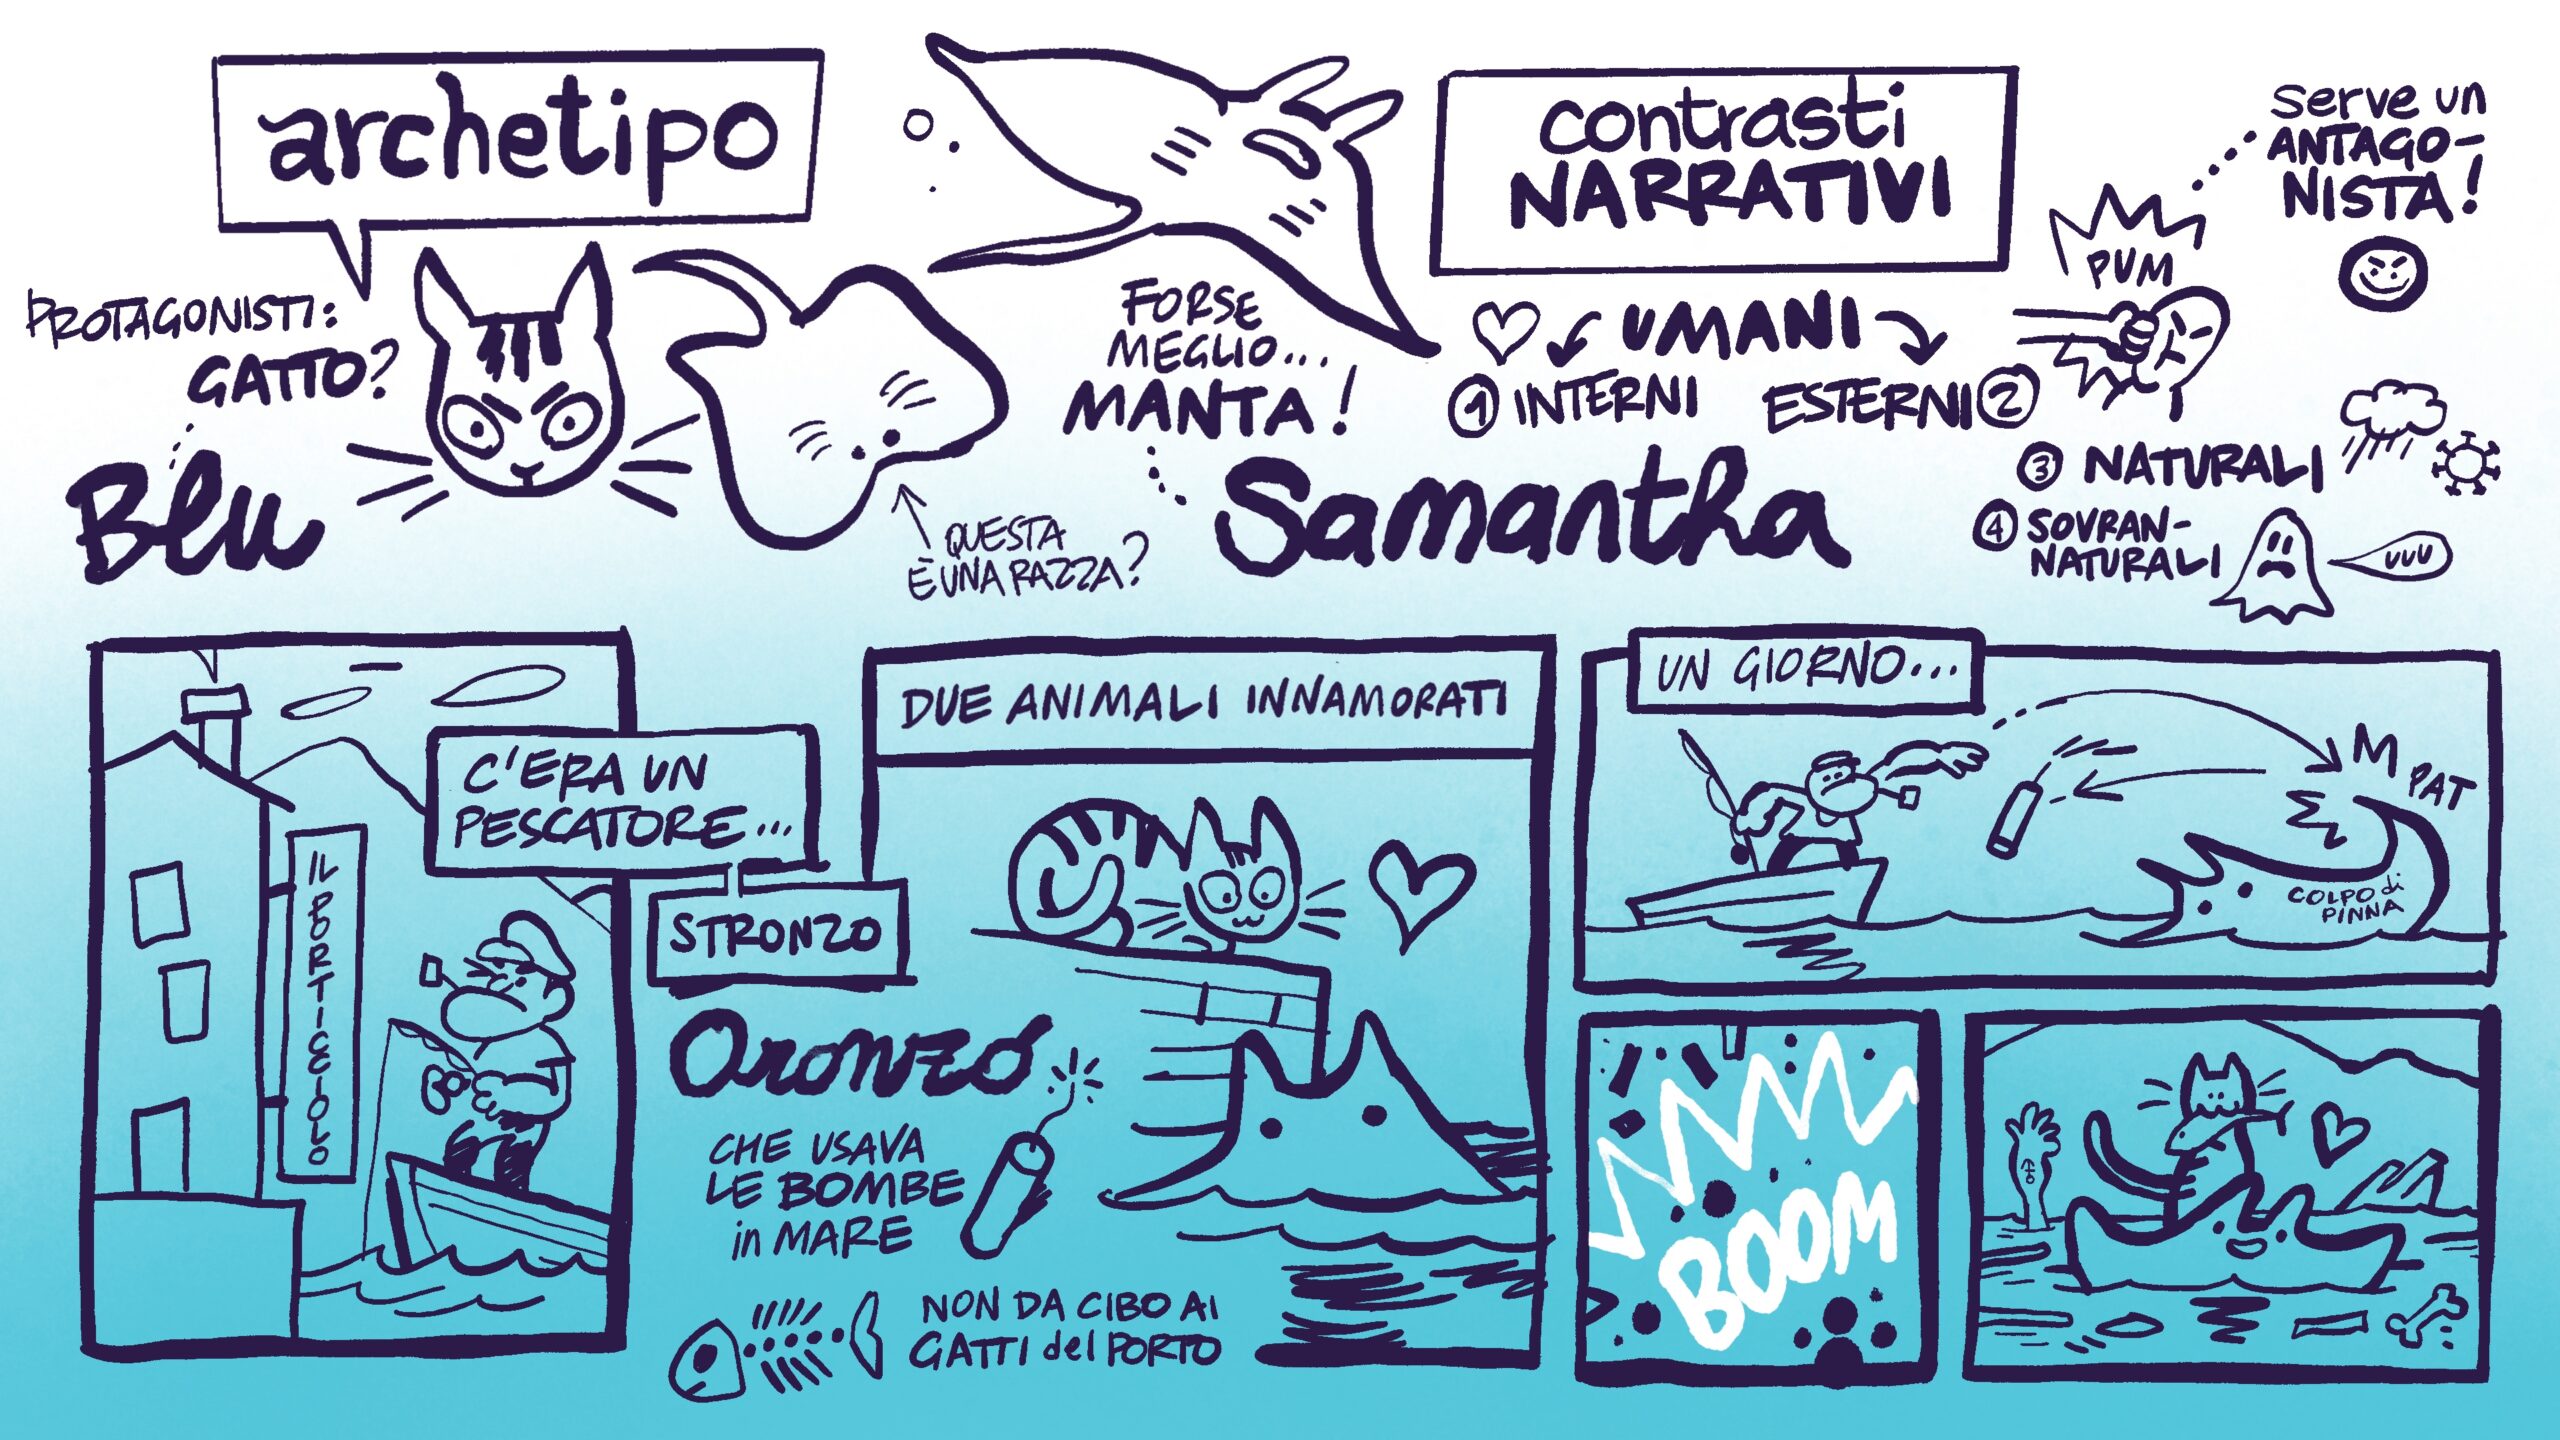 archetipo
PROTAGONISTI:
GATTO?
Blu
QUESTA
È UNA RAZZA?
FORSE
MEGLIO...
MANTA!
Samantha
contrasti
NARRATIVI
UMANI
1 INTERNI
ESTERNI 2
PUM
serve un
ANTAGO-
NISTA!
3 NATURALI
4 SOVRAN-
NATURALI
UUU
C'ERA UN
PESCATORE...
STRONZO
IL PORTICCIOLO
Oronzo
CHE USAVA
LE BOMBE
in MARE
NON DA CIBO AI
GATTI del PORTO
DUE ANIMALI INNAMORATI
UN GIORNO...
M
PAT
COLPO di
PINNA
BOOM